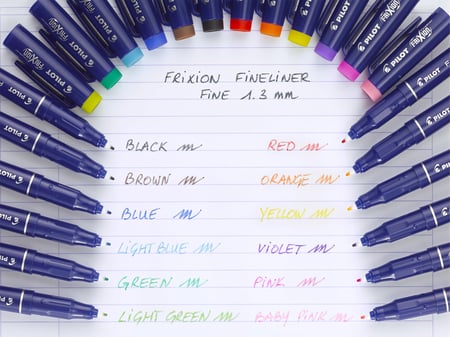 FRIXION FINELINER
FINE 1.3 mm
BLACK m
RED m
BROWN m
ORANGE m
BLUE m
YELLOW m
LIGHT BLUE m
VIOLET m
GREEN m
PINK m
LIGHT GREEN m
BABY PINK m
PILOT FRIXION
PILOT FRIXION
PILOT FRIXION
PILOT
PILOT
PILOT
PILOT
PILOT
PILOT